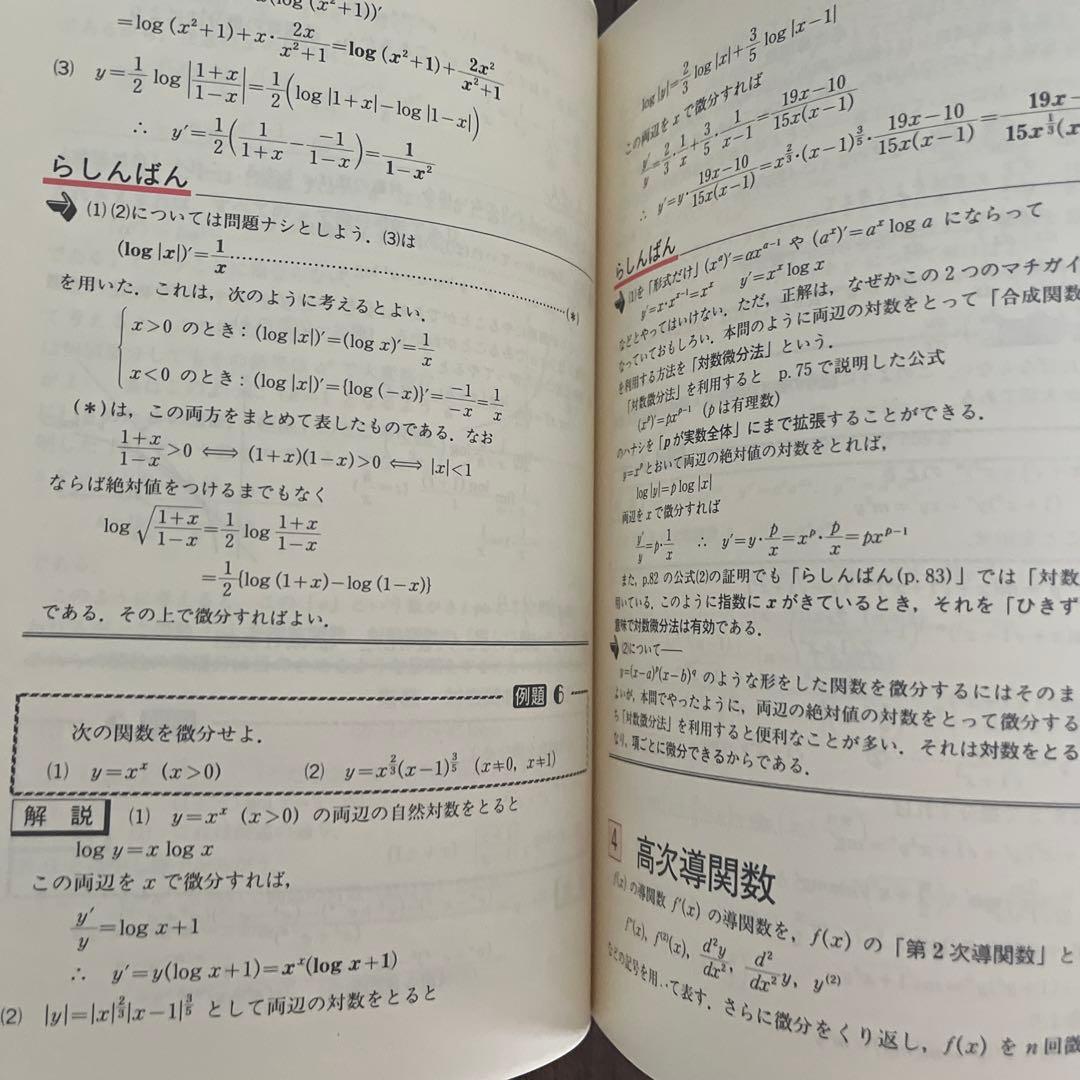 (log (x²+1))′
=log (x²+1)+x·2x/(x²+1)=log (x²+1)+2x²/(x²+1)
(3) y=1/2 log|(1+x)/(1−x)|=1/2(log|1+x|−log|1−x|)
∴ y′=1/2(1/(1+x)−(−1)/(1−x))=1/(1−x²)
らしんばん
(1)(2)については問題ナシとしよう.(3)は
(log |x|)′=1/x……(*)
を用いた.これは,次のように考えるとよい.
x>0 のとき:(log|x|)′=(log x)′=1/x
x<0 のとき:(log|x|)′={log(−x)}′=−1/−x=1/x
(*)は,この両方をまとめて表したものである.なお
(1+x)/(1−x)>0 ⟺ (1+x)(1−x)>0 ⟺ |x|<1
ならば絶対値をつけるまでもなく
log √((1+x)/(1−x))=1/2 log (1+x)/(1−x)
=1/2{log (1+x)−log (1−x)}
である.その上で微分すればよい.
例題 6
次の関数を微分せよ.
(1) y=xˣ (x>0) (2) y=x^(2/3)(x−1)^(3/5) (x≠0, x≠1)
解 説 (1) y=xˣ (x>0) の両辺の自然対数をとると
log y=x log x
この両辺を x で微分すれば,
y′/y=log x+1
∴ y′=y(log x+1)=xˣ(log x+1)
(2) |y|=|x|^(2/3)|x−1|^(3/5) として両辺の対数をとると
log|y|=2/3 log|x|+3/5 log|x−1|
この両辺を x で微分すれば
y′/y=2/3·1/x+3/5·1/(x−1)=(19x−10)/(15x(x−1))
∴ y′=y·(19x−10)/(15x(x−1))=x^(2/3)·(x−1)^(3/5)·(19x−10)/(15x(x−1))=19x−/15x^(1/3)(x
らしんばん
(1)を「形式だけ」(xᵅ)′=αxᵅ⁻¹ や (aˣ)′=aˣ log a にならって
y′=x·xˣ⁻¹=xˣ y′=xˣ log x
などとやってはいけない.ただ,正解は,なぜかこの2つのマチガイ
なっていておもしろい.本問のように両辺の対数をとって「合成関数
を利用する方法を「対数微分法」という.
「対数微分法」を利用すると p.75で説明した公式
(xᵖ)′=pxᵖ⁻¹ (pは有理数)
のハナシを「pが実数全体」にまで拡張することができる.
y=xᵖとおいて両辺の絶対値の対数をとれば,
log|y|=p log|x|
両辺をxで微分すれば
y′/y=p·1/x ∴ y′=y·p/x=xᵖ·p/x=pxᵖ⁻¹
また,p.82 の公式(2)の証明でも「らしんばん(p.83)」では「対数
用いている.このように指数にxがきているとき,それを「ひきず
意味で対数微分法は有効である.
(2)について——
y=(x−a)ᵖ(x−b)^q のような形をした関数を微分するにはそのま
よいが,本問でやったように,両辺の絶対値の対数をとって微分する
ち「対数微分法」を利用すると便利なことが多い.それは対数をとる
なり,項ごとに微分できるからである.
4 高次導関数
f(x) の導関数 f′(x) の導関数を,f(x) の「第2次導関数」と
f″(x), f⁽²⁾(x), d²y/dx², d²/dx² y, y⁽²⁾
などの記号を用いて表す.さらに微分をくり返し,f(x) を n回微